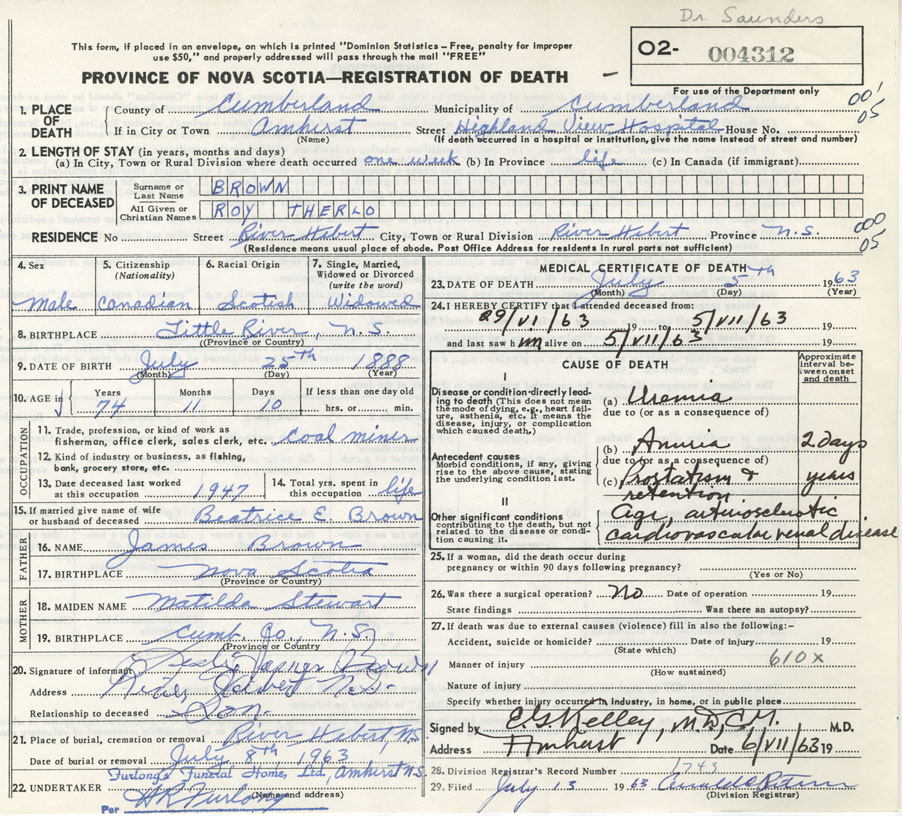 Dr. Saunders
This form, if placed in an envelope, on which is printed "Dominion Statistics – Free, penalty for improper
use $50," and properly addressed will pass through the mail "FREE"
O2- 004312
PROVINCE OF NOVA SCOTIA—REGISTRATION OF DEATH
For use of the Department only
1. PLACE OF DEATH County of Cumberland Municipality of Cumberland 00' 05
If in City or Town Amhurst Street Highland View Hospital House No.
(Name) (If death occurred in a hospital or institution, give the name instead of street and number)
2. LENGTH OF STAY (in years, months and days)
(a) In City, Town or Rural Division where death occurred one week (b) In Province life (c) In Canada (if immigrant)
3. PRINT NAME OF DECEASED Surname or Last Name BROWN
All Given or Christian Names ROY THERLO
RESIDENCE No Street River Hebert City, Town or Rural Division River Hebert Province N.S. 000 05
(Residence means usual place of abode. Post Office Address for residents in rural parts not sufficient)
4. Sex Male
5. Citizenship (Nationality) Canadian
6. Racial Origin Scotish
7. Single, Married, Widowed or Divorced (write the word) Widowed
8. BIRTHPLACE Little River, N.S.
(Province or Country)
9. DATE OF BIRTH July 25th 1888
(Month) (Day) (Year)
10. AGE in Years Months Days If less than one day old
74 11 10 hrs. or min.
OCCUPATION
11. Trade, profession, or kind of work as
fisherman, office clerk, sales clerk, etc. Coal miner
12. Kind of industry or business, as fishing,
bank, grocery store, etc.
13. Date deceased last worked at this occupation 1947
14. Total yrs. spent in this occupation life
15. If married give name of wife
or husband of deceased Beatrice E. Brown
FATHER
16. NAME James Brown
17. BIRTHPLACE Nova Scotia
(Province or Country)
MOTHER
18. MAIDEN NAME Matilda Stewart
19. BIRTHPLACE Cumb. Co., N.S.
(Province or Country)
20. Signature of informant Leslie James Brown
Address River Hebert N.S.
Relationship to deceased Son.
21. Place of burial, cremation or removal River Hebert, N.S.
Date of burial or removal July 8th 1963
Furlong's Funeral Home, Ltd, Amhurst N.S.
22. UNDERTAKER (Name and address)
Per HR Furlong
MEDICAL CERTIFICATE OF DEATH
23. DATE OF DEATH July 5th 1963
(Month) (Day) (Year)
24. I HEREBY CERTIFY that I attended deceased from:
29/VI/63 19 to 5/VII/63 19
and last saw him alive on 5/VII/63 19
CAUSE OF DEATH
Approximate interval between onset and death
I
Disease or condition directly leading to death (This does not mean the mode of dying, e.g., heart failure, asthenia, etc. It means the disease, injury, or complication which caused death.)
(a) Uremia
due to (or as a consequence of)
(b) Anuria 2 days
Antecedent causes
Morbid conditions, if any, giving rise to the above cause, stating the underlying condition last.
due to (or as a consequence of)
(c) Prostatism & retention years
II
Other significant conditions
contributing to the death, but not related to the disease or condition causing it.
Age, arteriosclerotic
cardiovascular renal disease
25. If a woman, did the death occur during
pregnancy or within 90 days following pregnancy?
(Yes or No)
26. Was there a surgical operation? No Date of operation 19
State findings Was there an autopsy?
27. If death was due to external causes (violence) fill in also the following:-
Accident, suicide or homicide? Date of injury 19
(State which)
Manner of injury 610x
(How sustained)
Nature of injury
Specify whether injury occurred in industry, in home, or in public place
Signed by E.G. Kelley, M.D., C.M. M.D.
Address Amhurst Date 6/VII/63 19
28. Division Registrar's Record Number 1743
29. Filed July 13 1963
(Division Registrar)